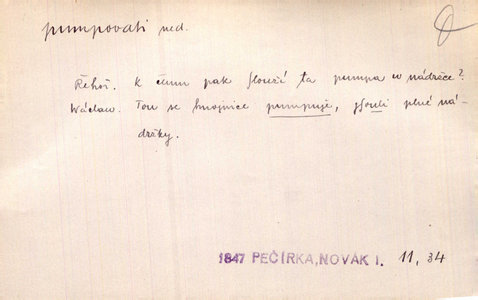 pumpovati ned.
Řehoř. K čemu pak slouží ta pumpa w nádržce?
Wáclaw. Tou se hnojnice pumpuje, jsouli plné ná-
držky.
1847 PEČÍRKA, NOVÁK I. 11, 34